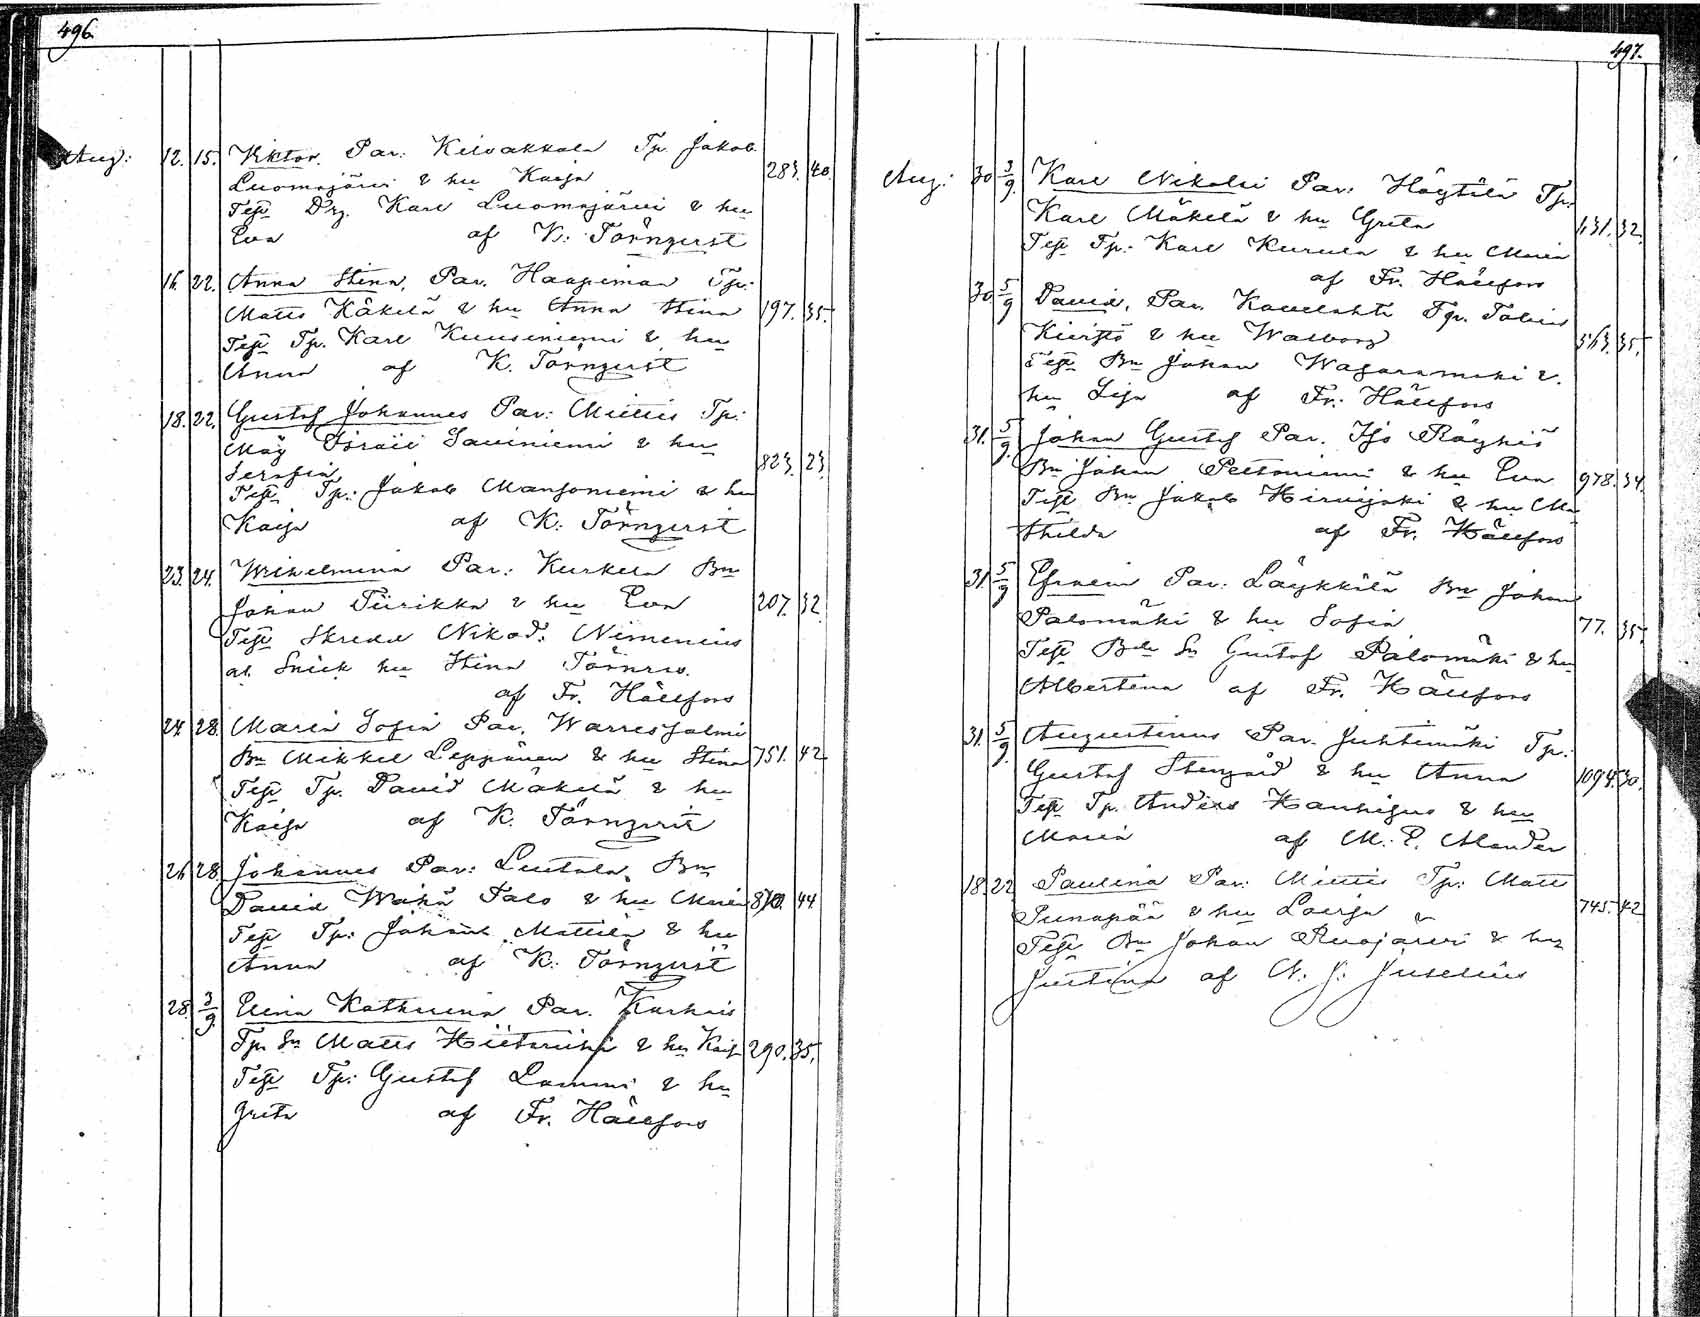 496.
Aug: 12. 15. Viktor. Par: Keivakkala Tp. Jakob
Luomajärvi & hu Kaisa 283. 40.
Test Drg. Karl Luomajärvi & hu
Eva af K: Törnqvist
16. 22. Anna Stina, Par. Haapimaa Tp:
Matts Käkelä & hu Anna Stina 197. 35.
Test Tp. Karl Kuusiniemi & hu
Anna af K. Törnqvist
18. 22. Gustaf Johannes Par: Miettis Tp:
Måg Israel Saviniemi & hu 823. 23.
Serafia
Test Tp: Jakob Mansoniemi & hu
Kaisa af K: Törnqvist
23. 24. Wilhelmina Par: Kurkela Bn
Johan Piirikka & hu Eva 207. 32.
Test Skrädd Nikod: Nimenius
hu Stina Törnros.
af Fr. Hällfors
24. 28. Maria Sofia Par. Warresjalmi
Bn Mikkel Leppänen & hu Stina 751. 42
Test Tp. David Mäkelä & hu
Kaisa af K. Törnqvist
26 28. Johannes Par: Luotola Bn
David Wähä Talo & hu Maria 44.
Test Tp: Johan Mattila & hu
Anna af K: Törnqvist
28. 3/9. Elina Kathrina Par. Karhais
Tp. Sn Matts & hu Kaisa 290. 35.
Test Tp: Gustaf Lammi & hu
Greta af Fr. Hällfors
497.
Aug: 30 3/9. Karl Nikolai Par: Höytölä Tp.
Karl Mäkelä & hu Greta 1,131. 32.
Test Tp: Karl Kurula & hu Maria
af Fr. Hällfors
30. 5/9 David, Par. Kovelahti Tp. Tobias
& hu Walborg 563. 35.
Test Bn Johan &
hu Lisa af Fr: Hällfors
31. 5/9. Johan Gustaf Par. Iso Röyhiö
Bn Johan Peltoniemi & hu Eva 978. 34.
Test Bn Jakob Hirvijoki & hu Ma
thilda af Fr. Hällfors
31. 5/9 Efraim Par: Löykkälä Bn Johan
Palomäki & hu Sofia 77. 35.
Test Bde Sn Gustaf Palomäki & hu
Albertina af Fr. Hällfors
31. 5/9. Augustinus Par. Juhtimäki Tp:
Gustaf Stengård & hu Anna 1094. 30.
Test Tp. Anders & hu
Maria af M. E. Alander
18. 22 Paulina Par: Miettis Tp: Matts
Punapää & hu Loviisa 745. 42
Test Bn Johan Ruojärvi & hu
Justina af N. J. Juselius